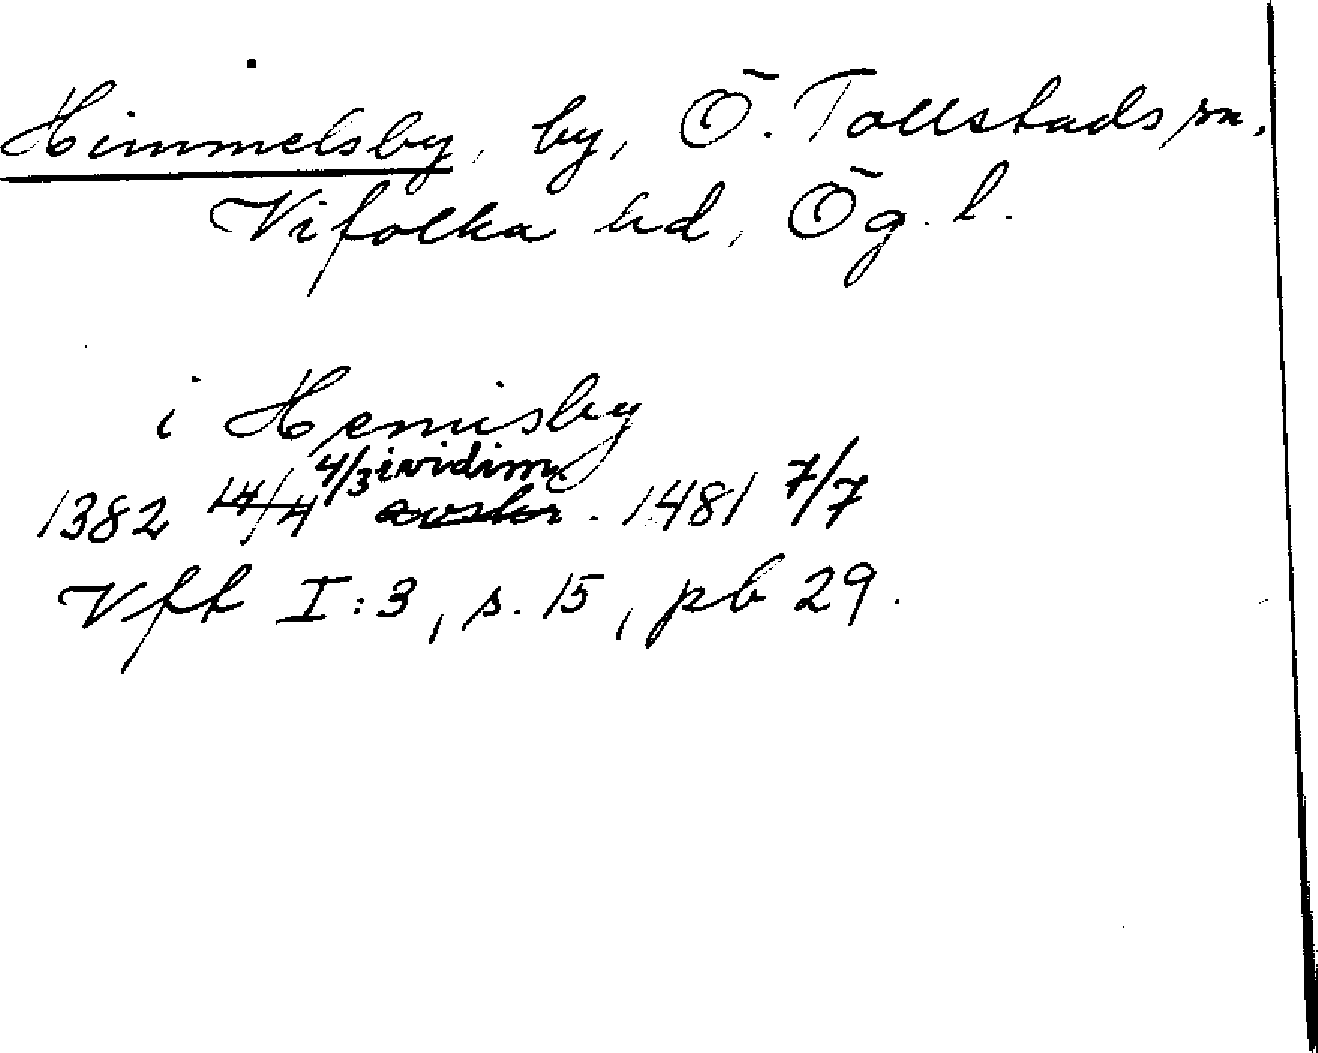 Himmelsby, by, Ö. Tollstads sn.
Vifolka hd, Ög. l.
i Hemisby
4/3 i vidim
1382 14/4 avskr. 1481 7/7
Vff I:3, s. 15, pb 29.